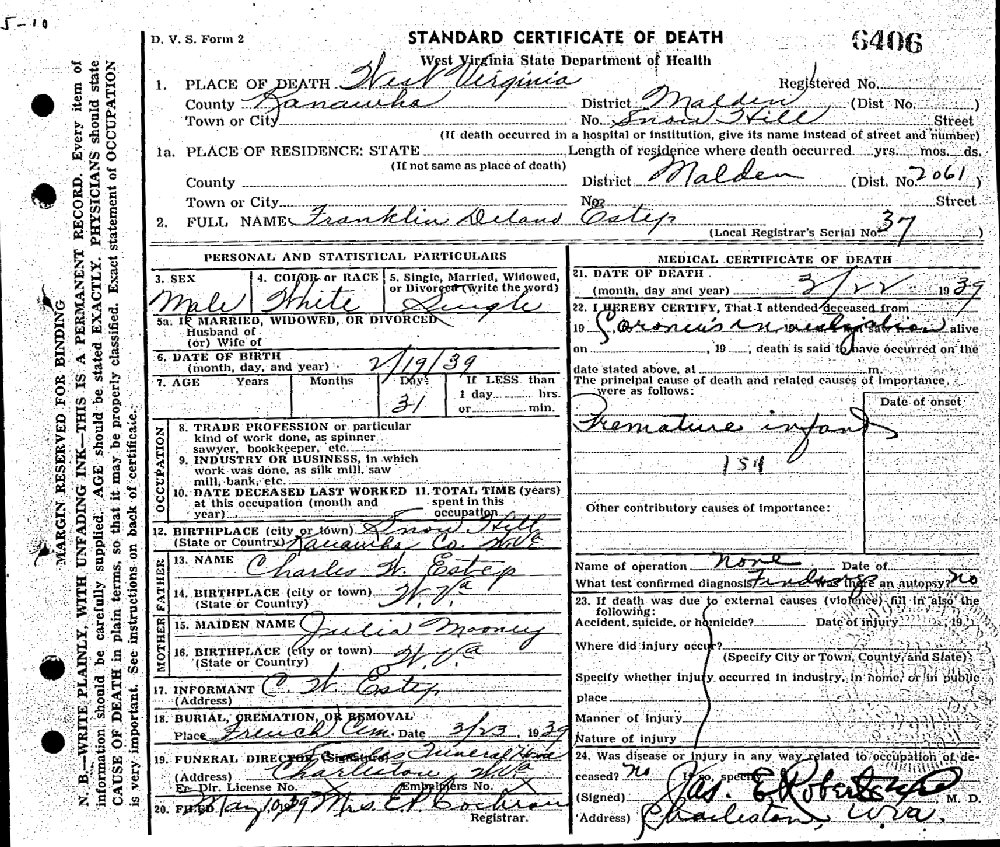 5-10
D. V. S. Form 2
STANDARD CERTIFICATE OF DEATH
6406
West Virginia State Department of Health
1. PLACE OF DEATH West Virginia Registered No.
County Kanawha District Malden (Dist No. )
Town or City No. Snow Hill Street
(If death occurred in a hospital or institution, give its name instead of street and number)
1a. PLACE OF RESIDENCE: STATE Length of residence where death occurred yrs. mos. ds.
(If not same as place of death)
County District Malden (Dist. No. 2061)
Town or City No. Street
2. FULL NAME Franklin Delano Estep
(Local Registrar's Serial No. 37 )
PERSONAL AND STATISTICAL PARTICULARS
3. SEX Male
4. COLOR or RACE White
5. Single, Married, Widowed, or Divorced (write the word) Single
5a. IF MARRIED, WIDOWED, OR DIVORCED
Husband of
(or) Wife of
6. DATE OF BIRTH
(month, day, and year) 2/19/39
7. AGE Years Months Days If LESS than
1 day hrs.
31 or min.
OCCUPATION
8. TRADE PROFESSION or particular
kind of work done, as spinner
sawyer, bookkeeper, etc.
9. INDUSTRY OR BUSINESS, in which
work was done, as silk mill, saw
mill, bank, etc.
10. DATE DECEASED LAST WORKED at this occupation (month and year)
11. TOTAL TIME (years) spent in this occupation
12. BIRTHPLACE (city or town) Snow Hill
(State or Country) Kanawha Co. W.Va
FATHER
13. NAME Charles W. Estep
14. BIRTHPLACE (city or town) W. Va
(State or Country)
MOTHER
15. MAIDEN NAME Julia Mooney
16. BIRTHPLACE (city or town) W. Va
(State or Country)
17. INFORMANT C. W. Estep
(Address)
18. BURIAL, CREMATION, OR REMOVAL
Place French Cem. Date 3/23, 1939
19. FUNERAL DIRECTOR (Signature) Funeral Home
(Address) Charleston, W.Va
Fr Dir. License No. Embalmers No.
20. FILED May 10, 39 Mrs. E. P. Cochran
Registrar.
MEDICAL CERTIFICATE OF DEATH
21. DATE OF DEATH
(month, day and year) 3/22 1939
22. I HEREBY CERTIFY, That I attended deceased from
19 Coroner's investigation saw alive
on , 19 , death is said to have occurred on the
date stated above, at m.
The principal cause of death and related causes of importance
were as follows:
Date of onset
Premature infant
159
Other contributory causes of importance:
Name of operation none Date of
What test confirmed diagnosis Findings Was there an autopsy? no
23. If death was due to external causes (violence) fill in also the
following:
Accident, suicide, or homicide? Date of injury , 19
Where did injury occur?
(Specify City or Town, County, and State)
Specify whether injury occurred in industry, in home, or in public
place
Manner of Injury
Nature of injury
24. Was disease or injury in any way related to occupation of de-
ceased? no If so, specify
(Signed) Jas. E. Roberts M. D.
(Address) Charleston, W.Va.
MARGIN RESERVED FOR BINDING
N. B.—WRITE PLAINLY, WITH UNFADING INK—THIS IS A PERMANENT RECORD. Every item of
information should be carefully supplied. AGE should be stated EXACTLY. PHYSICIANS should state
CAUSE OF DEATH in plain terms, so that it may be properly classified. Exact statement of OCCUPATION
is very important. See instructions on back of certificate.